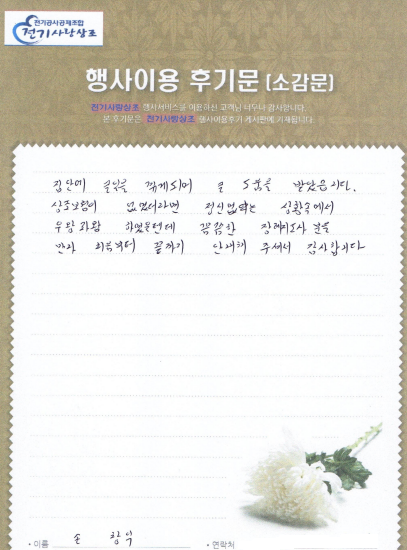 전기공사공제조합
전기사랑상조
행사이용 후기문 [소감문]
전기사랑상조 행사서비스를 이용하신 고객님 너무나 감사합니다.
본 후기문은 전기사랑상조 행사이용후기 게시판에 기재됩니다.
집안에 궂은일을 겪게되어 큰 도움을 받았습니다.
상조보험이 없었더라면 정신없는 상황속에서
우왕좌왕 하였을텐데 꼼꼼한 장례지도사 분을
만나 처음부터 끝까지 안내해 주셔서 감사합니다
• 이름 손
• 연락처